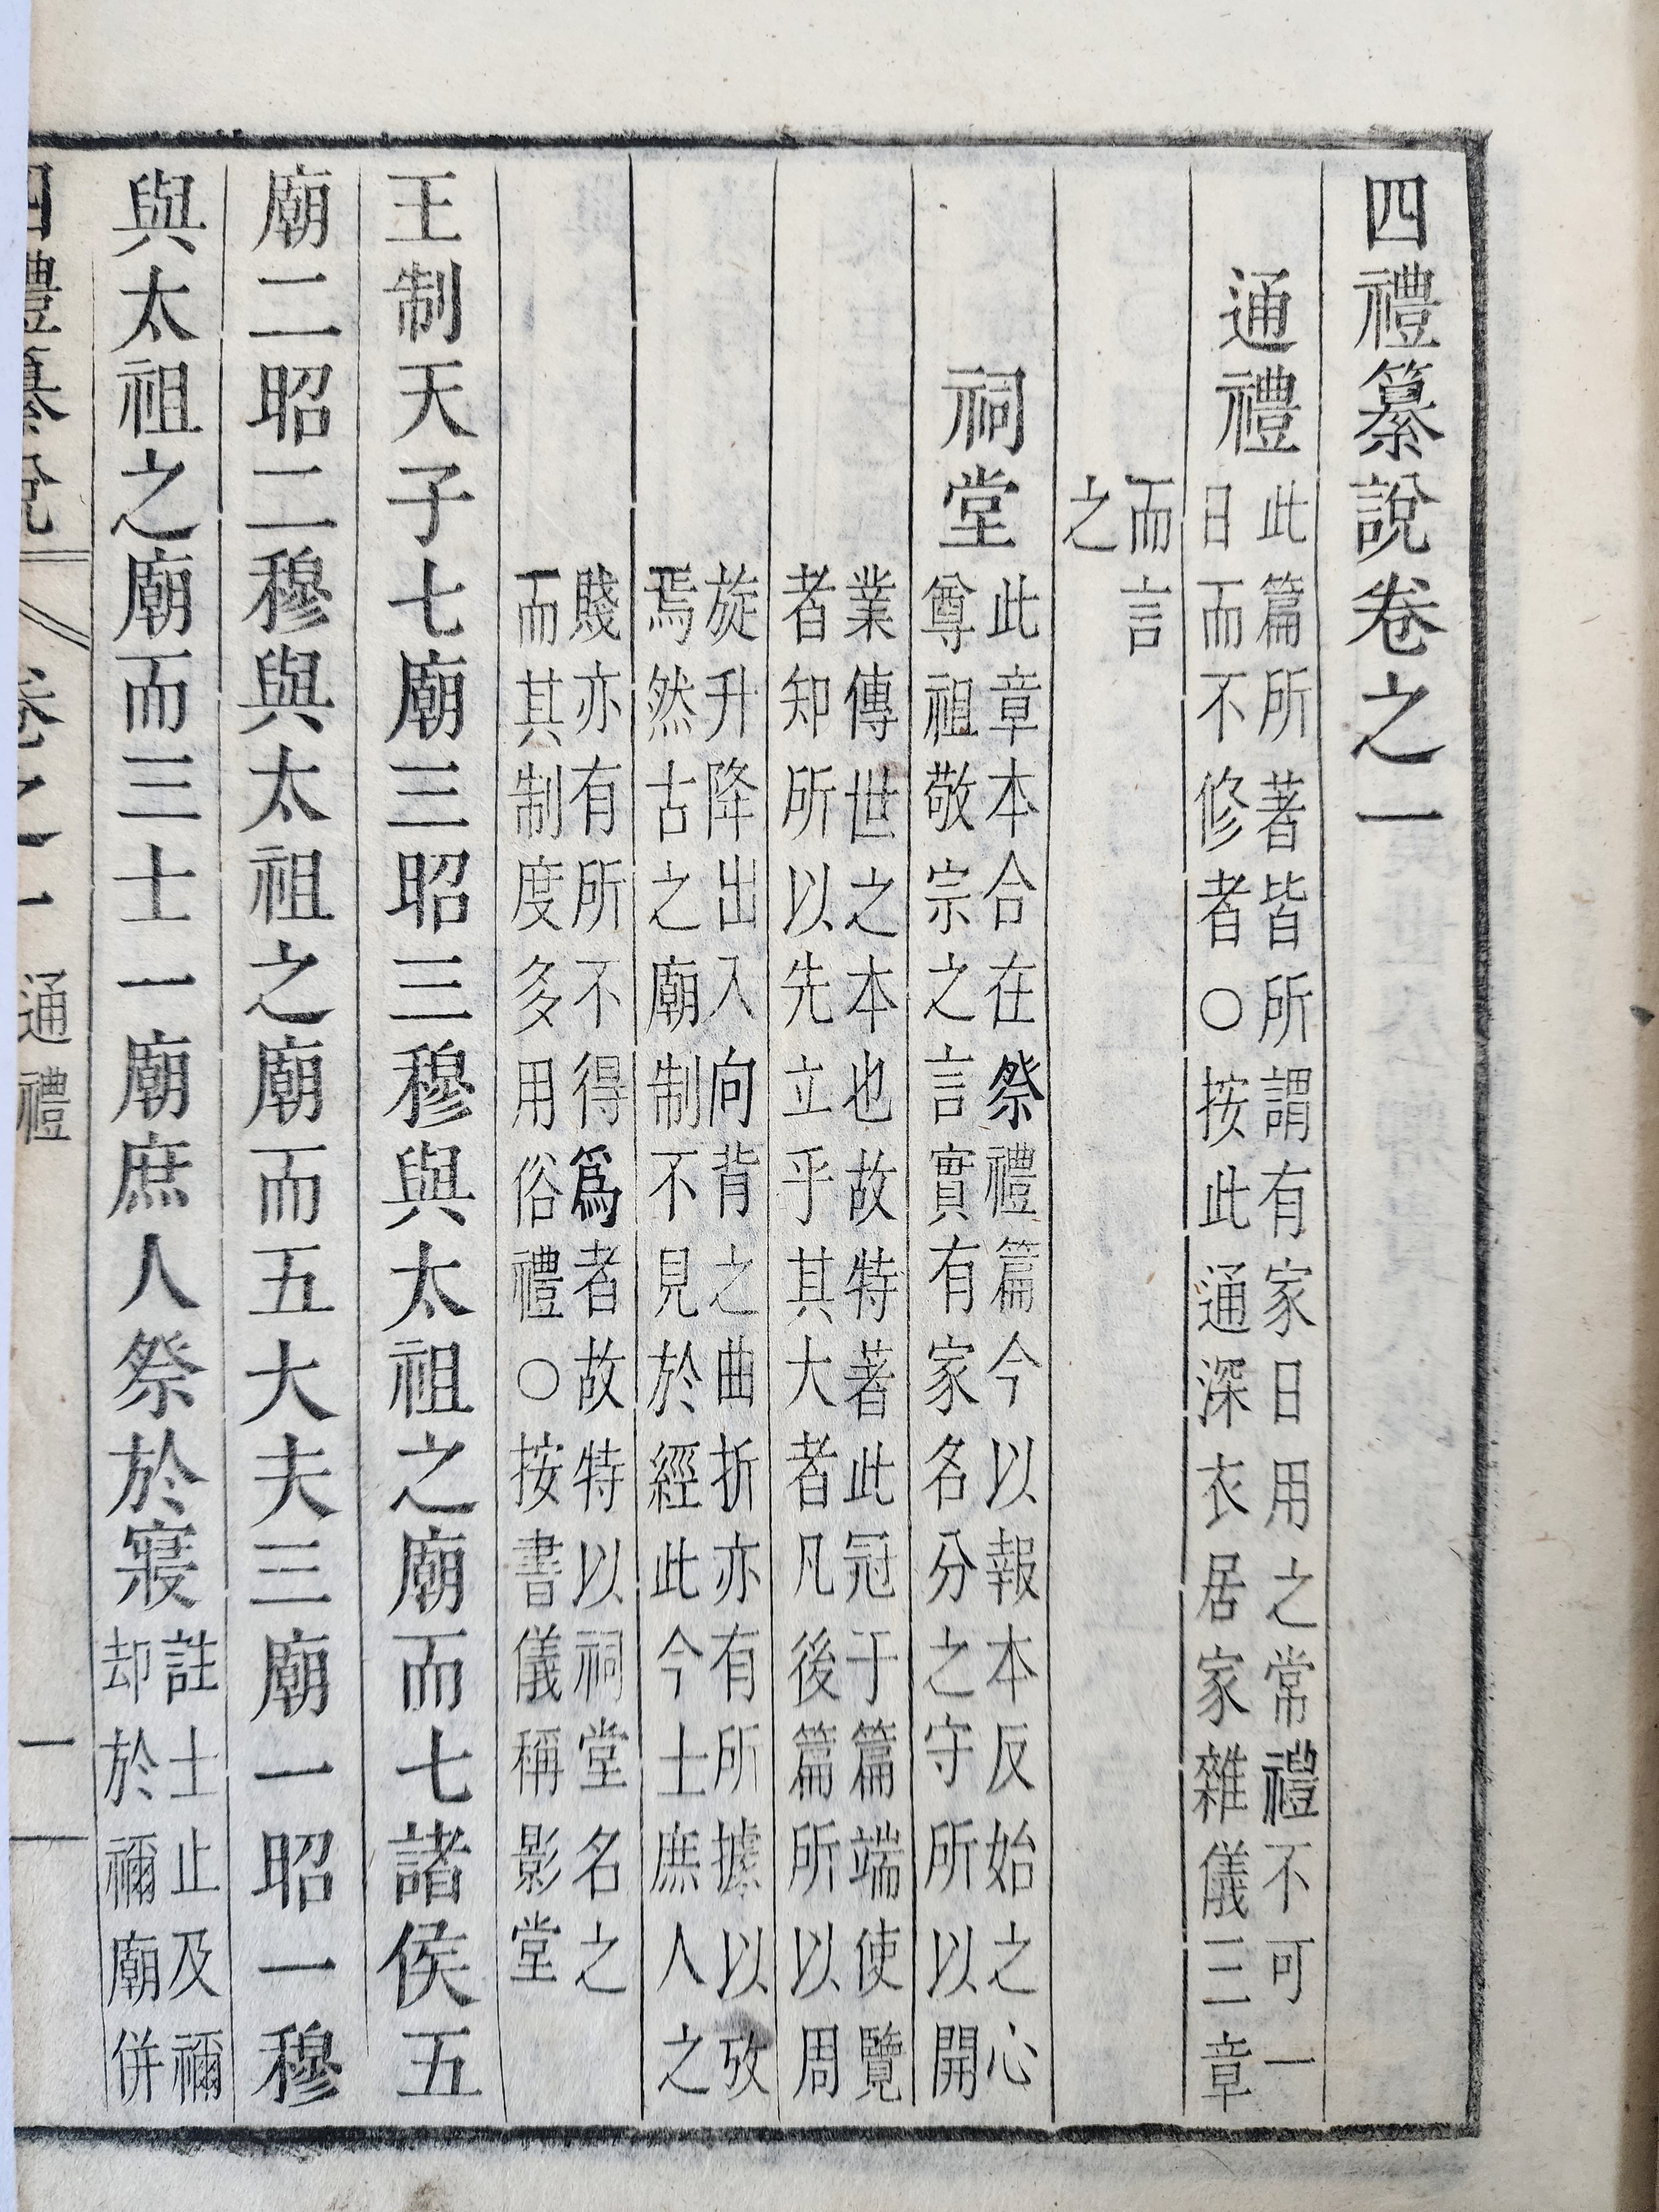 四禮纂說卷之一
通禮
此篇所著皆所謂有家日用之常禮不可一
日而不修者○按此通深衣居家雜儀三章
而言
之
祠堂
此章本合在祭禮篇今以報本反始之心
尊祖敬宗之言實有家名分之守所以開
業傳世之本也故特著此冠于篇端使覽
者知所以先立乎其大者凡後篇所以周
旋升降出入向背之曲折亦有所據以攷
焉然古之廟制不見於經此今士庶人之
賤亦有所不得爲者故特以祠堂名之
而其制度多用俗禮○按書儀稱影堂
王制天子七廟三昭三穆與太祖之廟而七諸侯五
廟二昭二穆與太祖之廟而五大夫三廟一昭一穆
與太祖之廟而三士一廟庶人祭於寢
註士止及禰
却於禰廟併
四禮纂說 卷之一 通禮 一